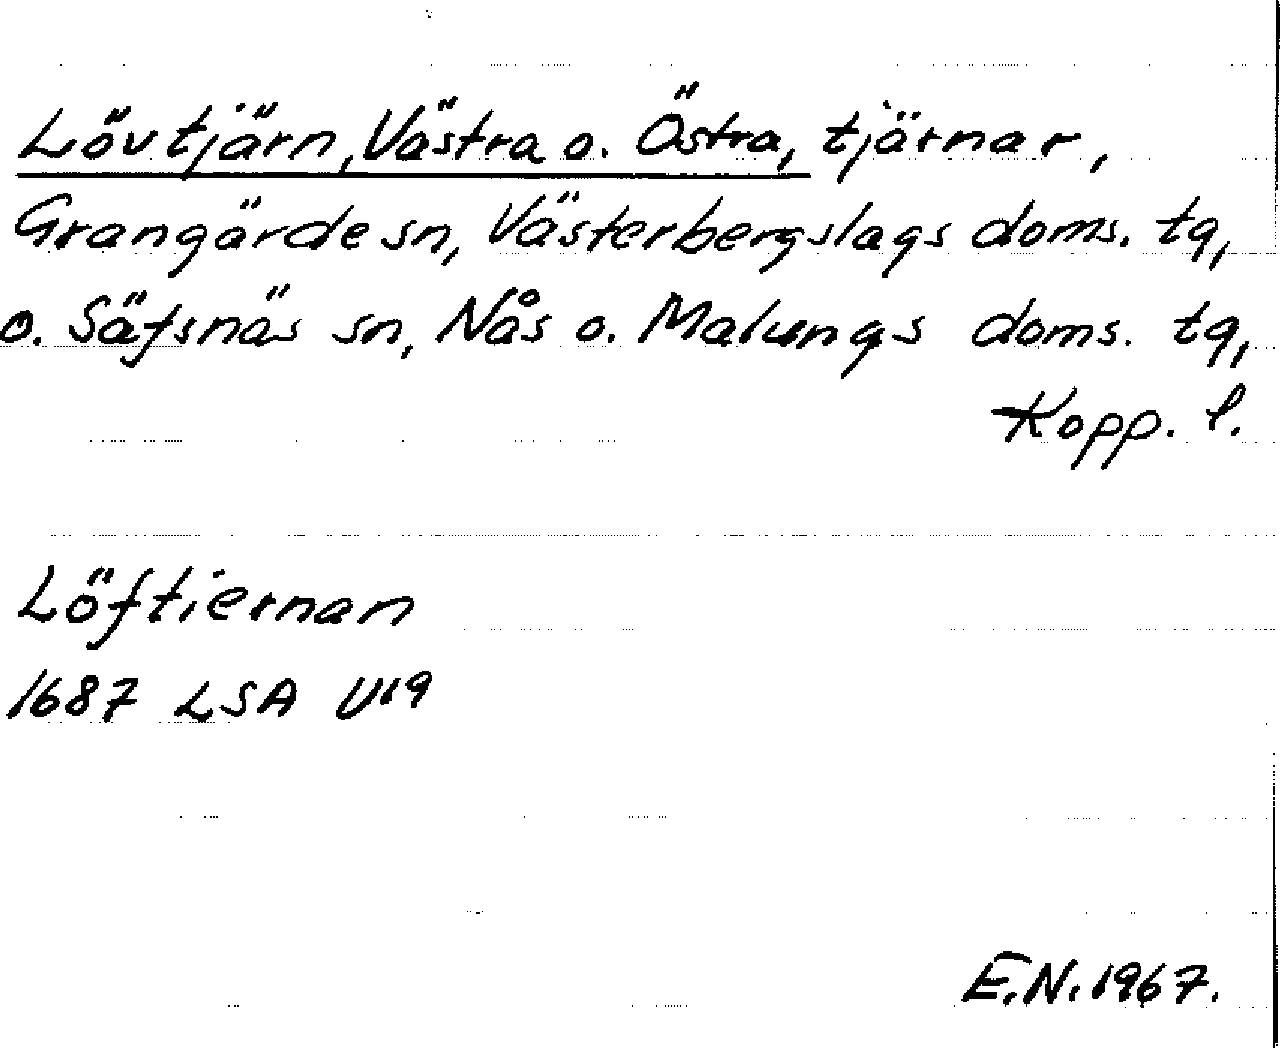 Lövtjärn, Västra o. Östra, tjärnar,
Grangärde sn, Västerbergslags doms. tg,
o. Säfsnäs sn, Nås o. Malungs doms. tg,
Kopp. l.
Löftiernan
1687 LSA U19
E.N. 1967.